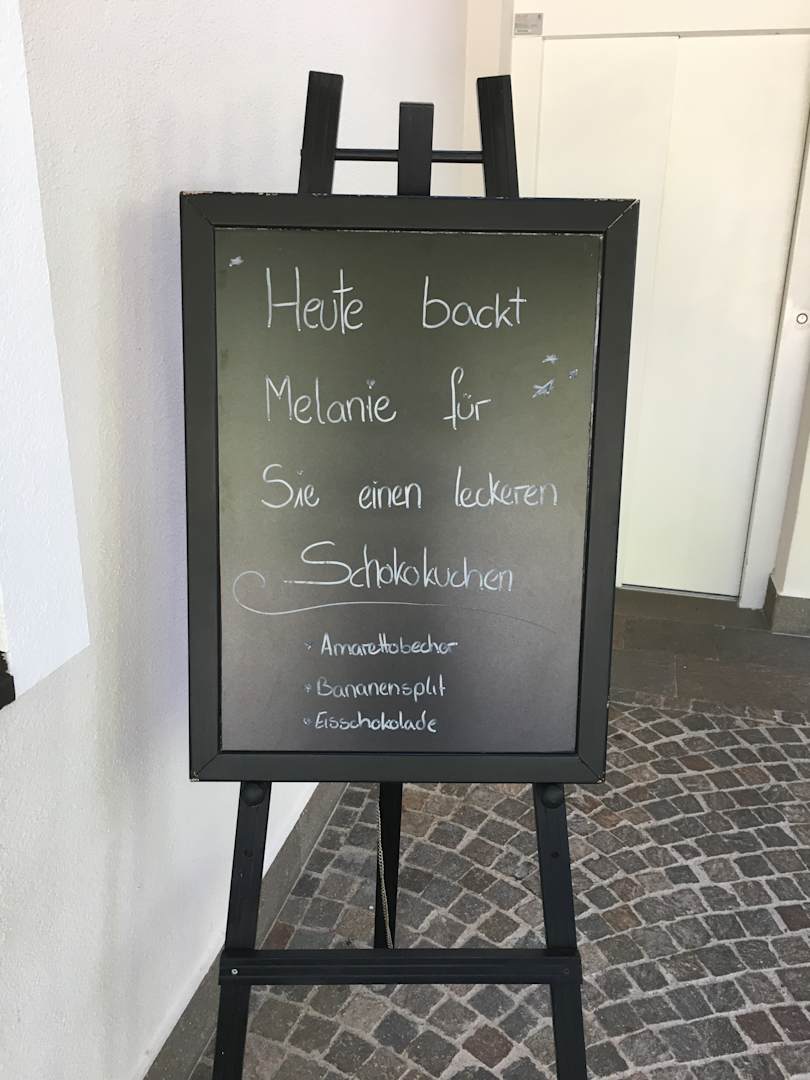 Heute backt
Melanie für
Sie einen leckeren
Schokokuchen
* Amarettobecher
* Bananensplit
* Eisschokolade